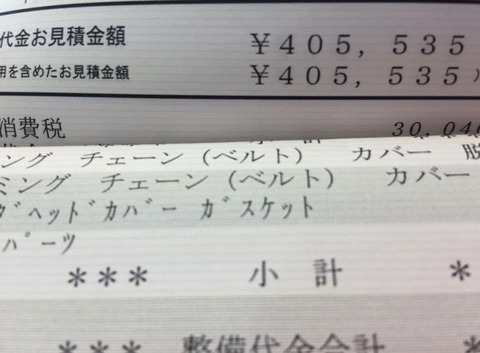 代金お見積金額 ¥405,535
用を含めたお見積金額 ¥405,535)
消費税 30,040
ミング チェーン(ベルト) カバー 脱
ミング チェーン(ベルト) カバー
ダヘッドカバー ガスケット
パーツ
*** 小 計 *
*** 整備代金合計 *